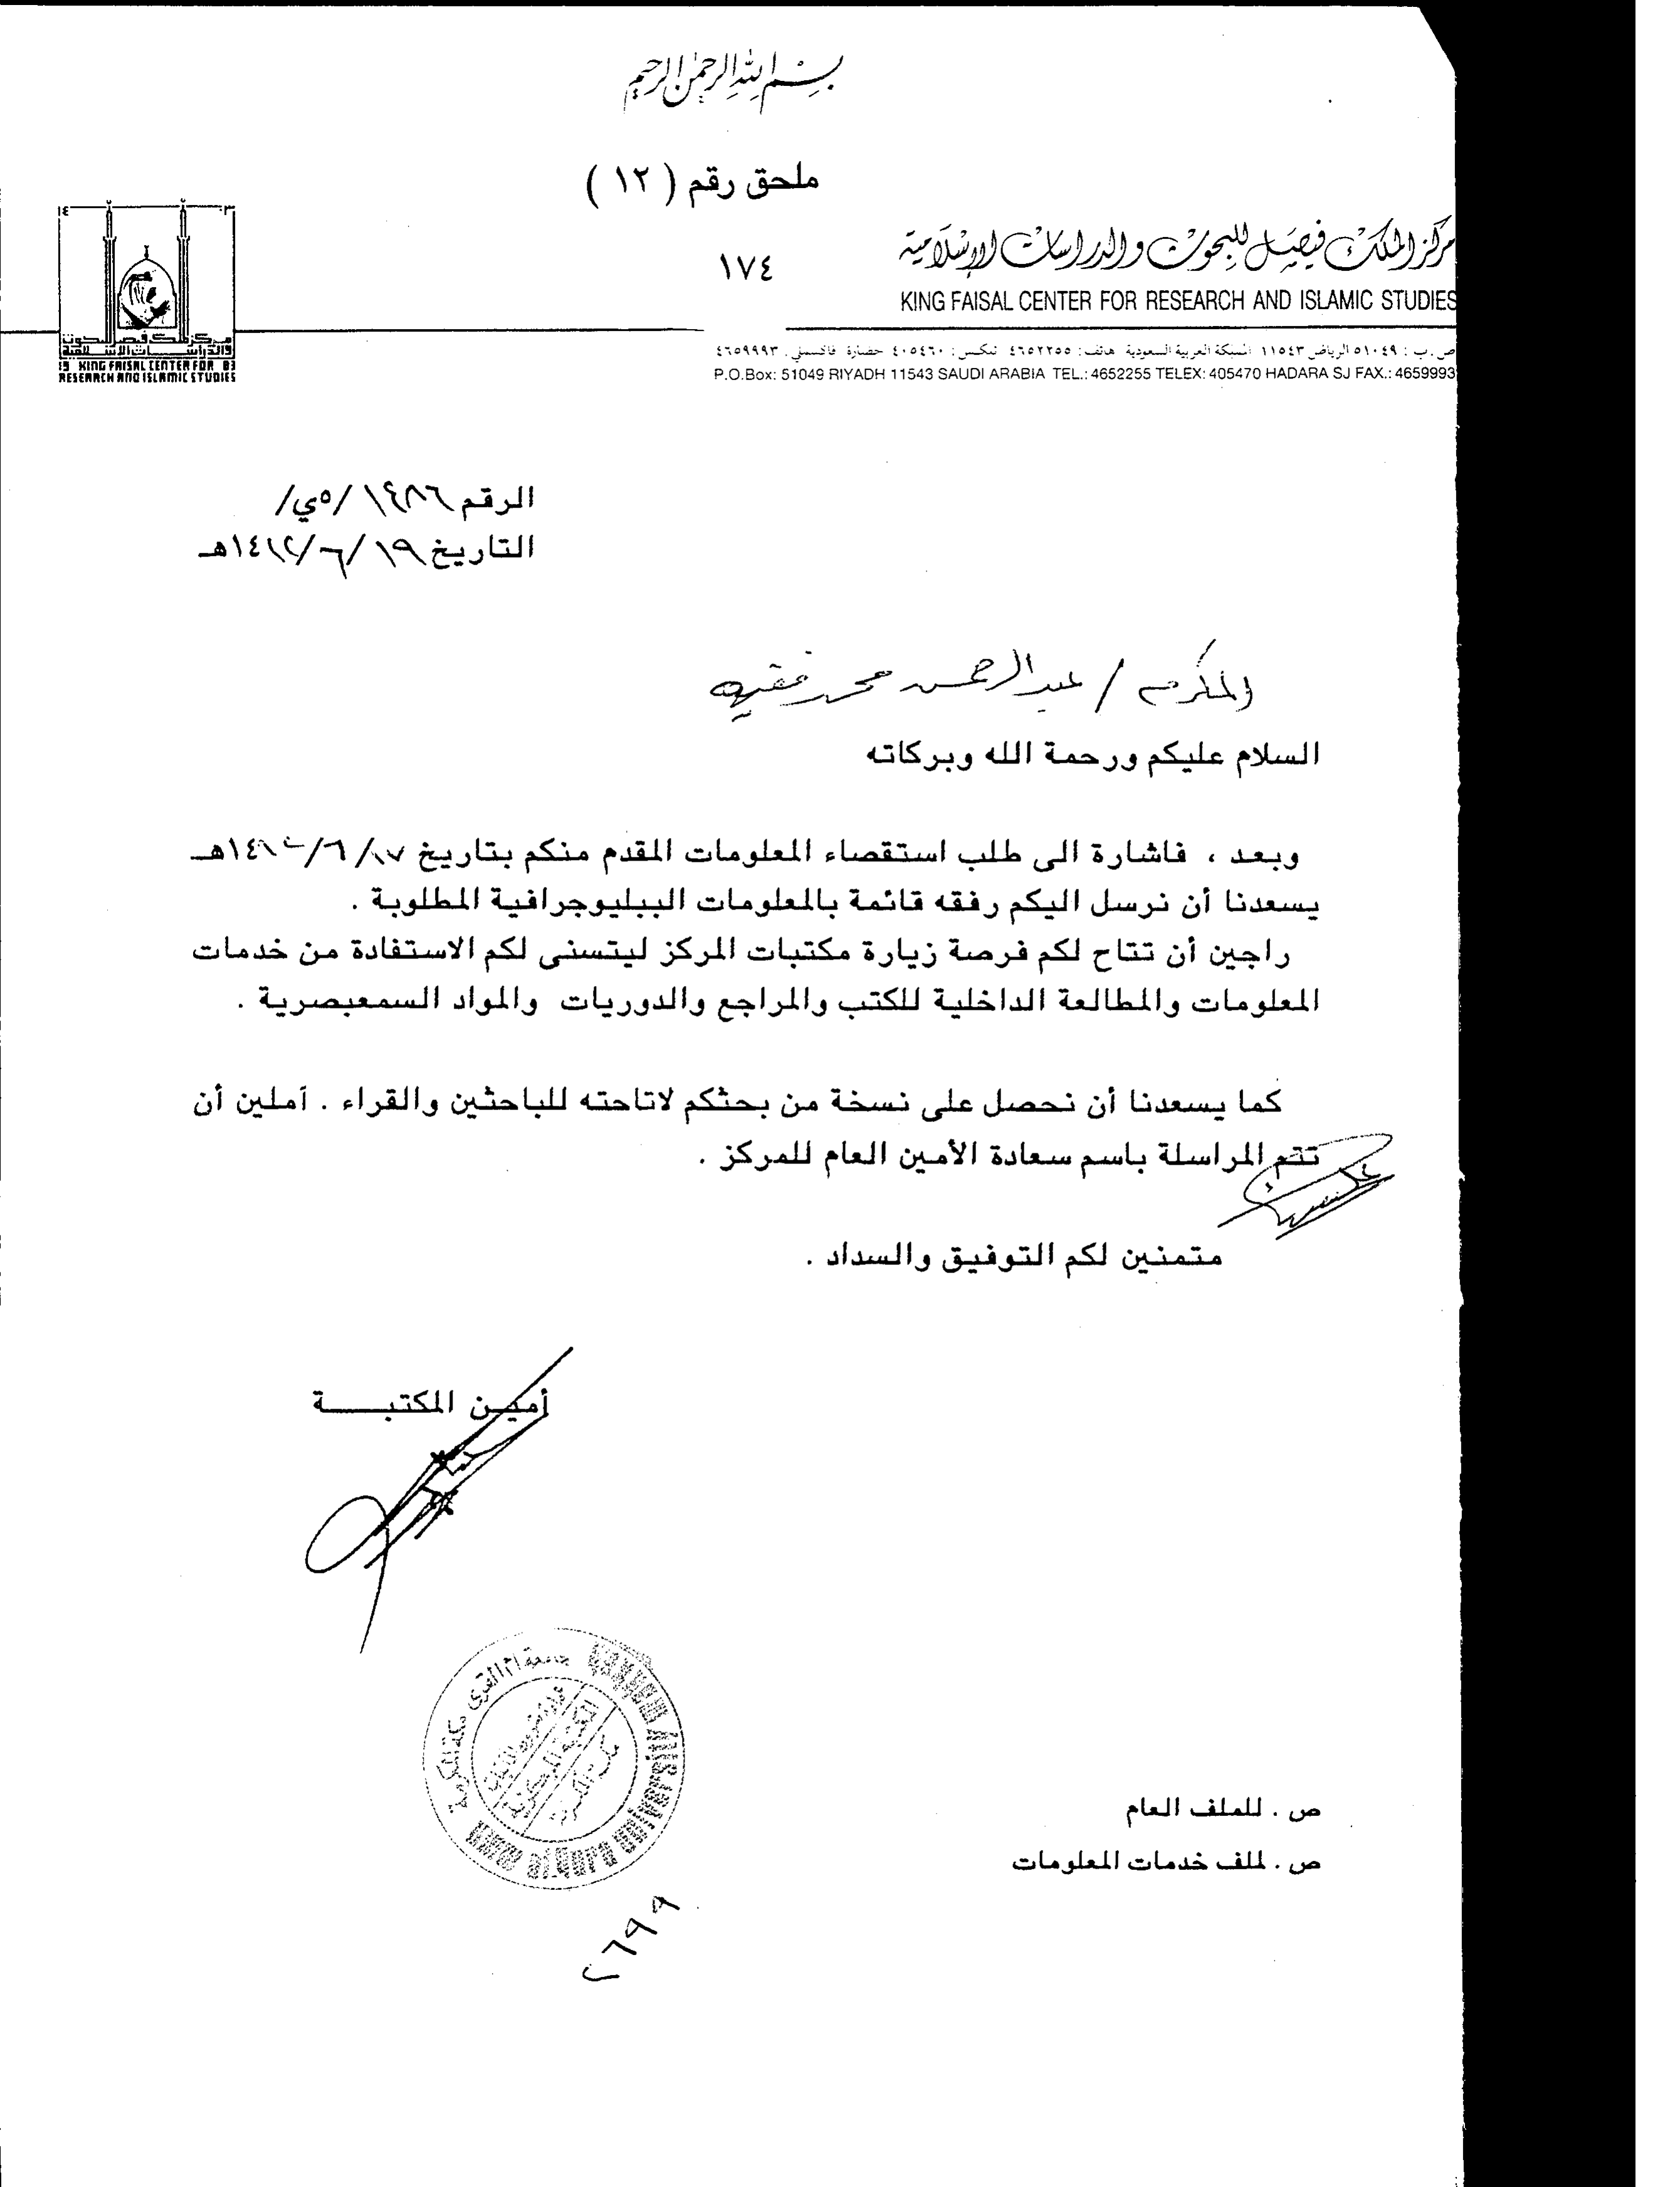 بسم الله الرحمن الرحيم
ملحق رقم ( ١٢ )
مركز الملك فيصل للبحوث والدراسات الإسلامية
١٧٤
KING FAISAL CENTER FOR RESEARCH AND ISLAMIC STUDIES
ص.ب : ٥١٠٤٩ الرياض ١١٥٤٣ المملكة العربية السعودية هاتف : ٤٦٥٢٢٥٥ تلكس : ٤٠٥٤٦٠ حضارة فاكسملي . ٤٦٥٩٩٩٣
P.O.Box: 51049 RIYADH 11543 SAUDI ARABIA TEL.: 4652255 TELEX: 405470 HADARA SJ FAX.: 4659993
١٤٠٣
19 KING FAISAL CENTER FOR 83
RESEARCH AND ISLAMIC STUDIES
الرقم ١٤٨٦ /٥ي/
التاريخ ١٩ /٦ /١٤١٢هـ
المكرم / عبدالرحمن محمد فقيه
السلام عليكم ورحمة الله وبركاته
وبعد ، فاشارة الى طلب استقصاء المعلومات المقدم منكم بتاريخ /٦/ هـ
يسعدنا أن نرسل اليكم رفقه قائمة بالمعلومات الببليوجرافية المطلوبة .
راجين أن تتاح لكم فرصة زيارة مكتبات المركز ليتسنى لكم الاستفادة من خدمات
المعلومات والمطالعة الداخلية للكتب والمراجع والدوريات والمواد السمعبصرية .
كما يسعدنا أن نحصل على نسخة من بحثكم لاتاحته للباحثين والقراء . آملين أن
تتم المراسلة باسم سعادة الأمين العام للمركز .
متمنين لكم التوفيق والسداد .
أمين المكتبـــــة
جامعة أم القرى مكة المكرمة
ص . للملف العام
ص . لملف خدمات المعلومات
٢٦٩٩